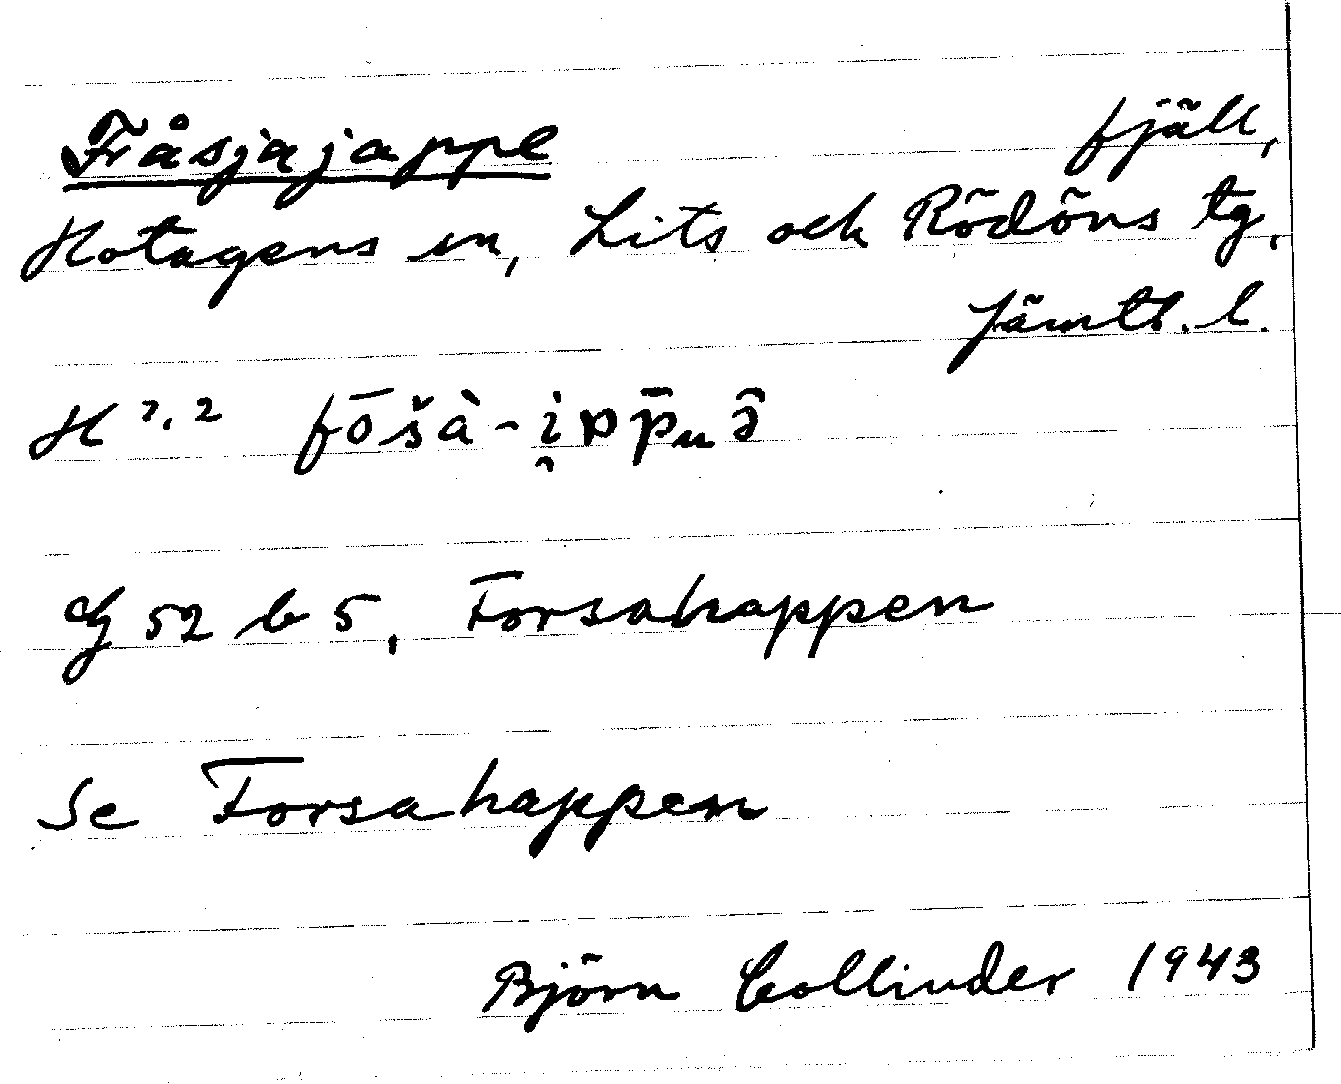 Fråsjajappe fjäll,
Hotagens sn, Lits och Rödöns tg,
Jämtl. l.
fōšà-i̯pp̄u
G 52 b 5, Forsahappen
Se Forsahappen
Björn Collinder 1943